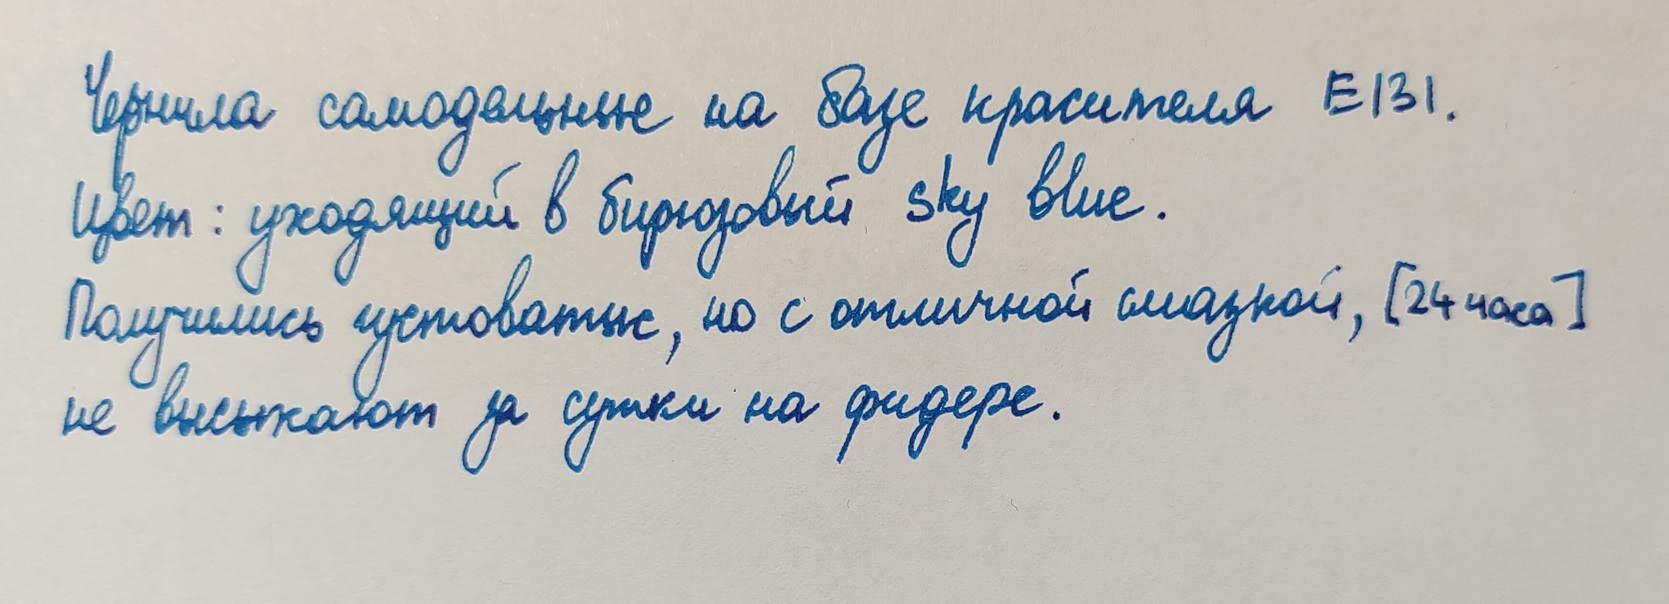 Чернила самодельные на базе красителя E131.
Цвет: уходящий в бирюзовый sky blue.
Получились густоватые, но с отличной смазкой, [24 часа]
не высыхают за сутки на фидере.